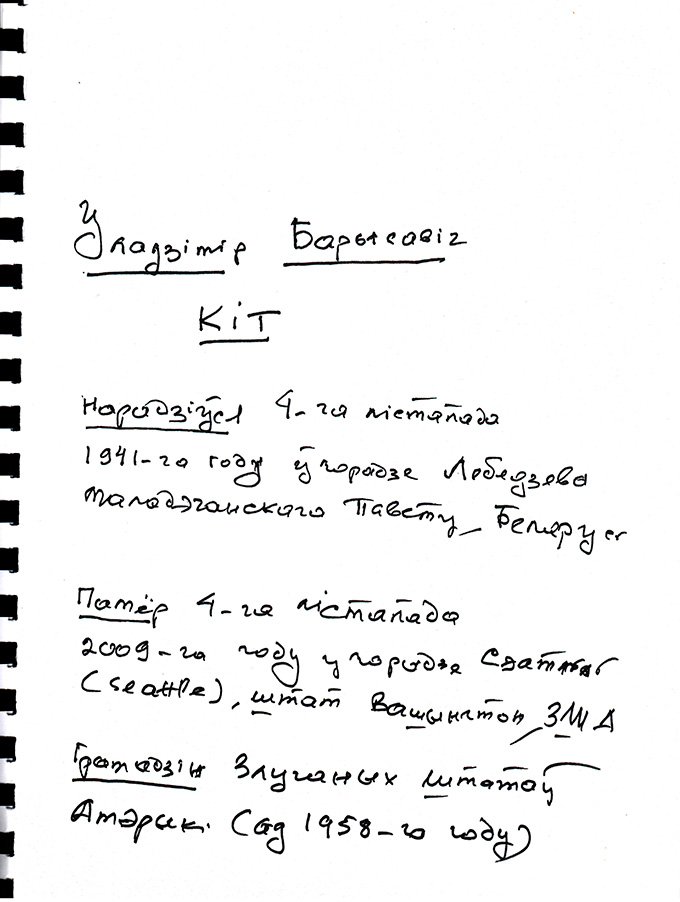 Уладзімір Барысавіч
КІТ
Нарадзіўся 4-га лістапада
1941-га году ў горадзе Лебедзева
маладэчанскага Павету, Беларусь
Памёр 4-га лістапада
2009-га году у горадзе
(Seattle), штат Вашынгтон, ЗША
Грамадзін Злучаных штатаў
Амэрыкі (ад 1958-го году)